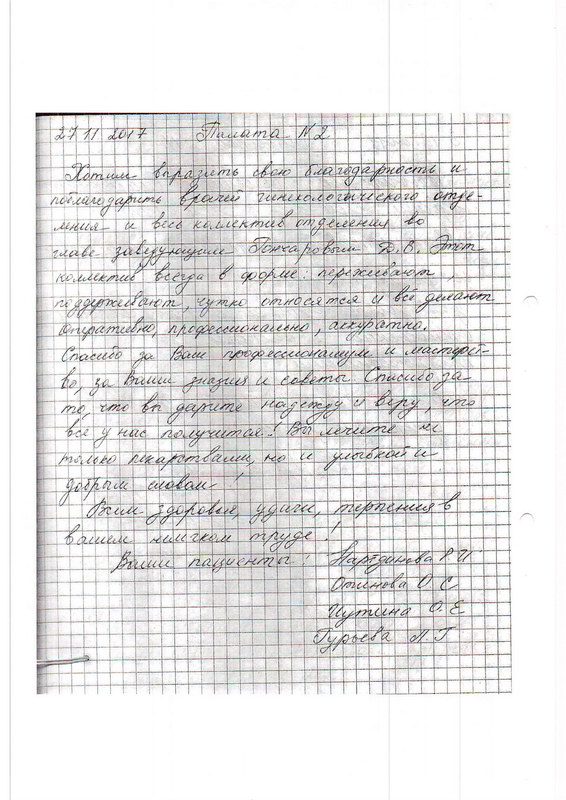 27 11 2017 Палата N 2
Хотим выразить свою благодарность и
поблагодарить врачей гиникологического отде-
ления и весь коллектив отделения во
главе заведующим Гончаровым Д.В. Этот
коллектив всегда в форме: переживают,
поддерживают, чутко относятся и всё делают
оперативно, профессионально, аккуратно.
Спасибо за Ваш профессионализм и мастерст-
во, за Ваши знания и советы. Спасибо за
то, что вы дарите надежду и веру, что
всё у нас получится! Вы лечите не
только лекарствами, но и улыбкой и
добрым словом!
Всем здоровья, удачи, терпения в
вашем нелёгком труде!
Ваши пациенты:
Р. И
О. С
О. Е
Гурьева Л. Г